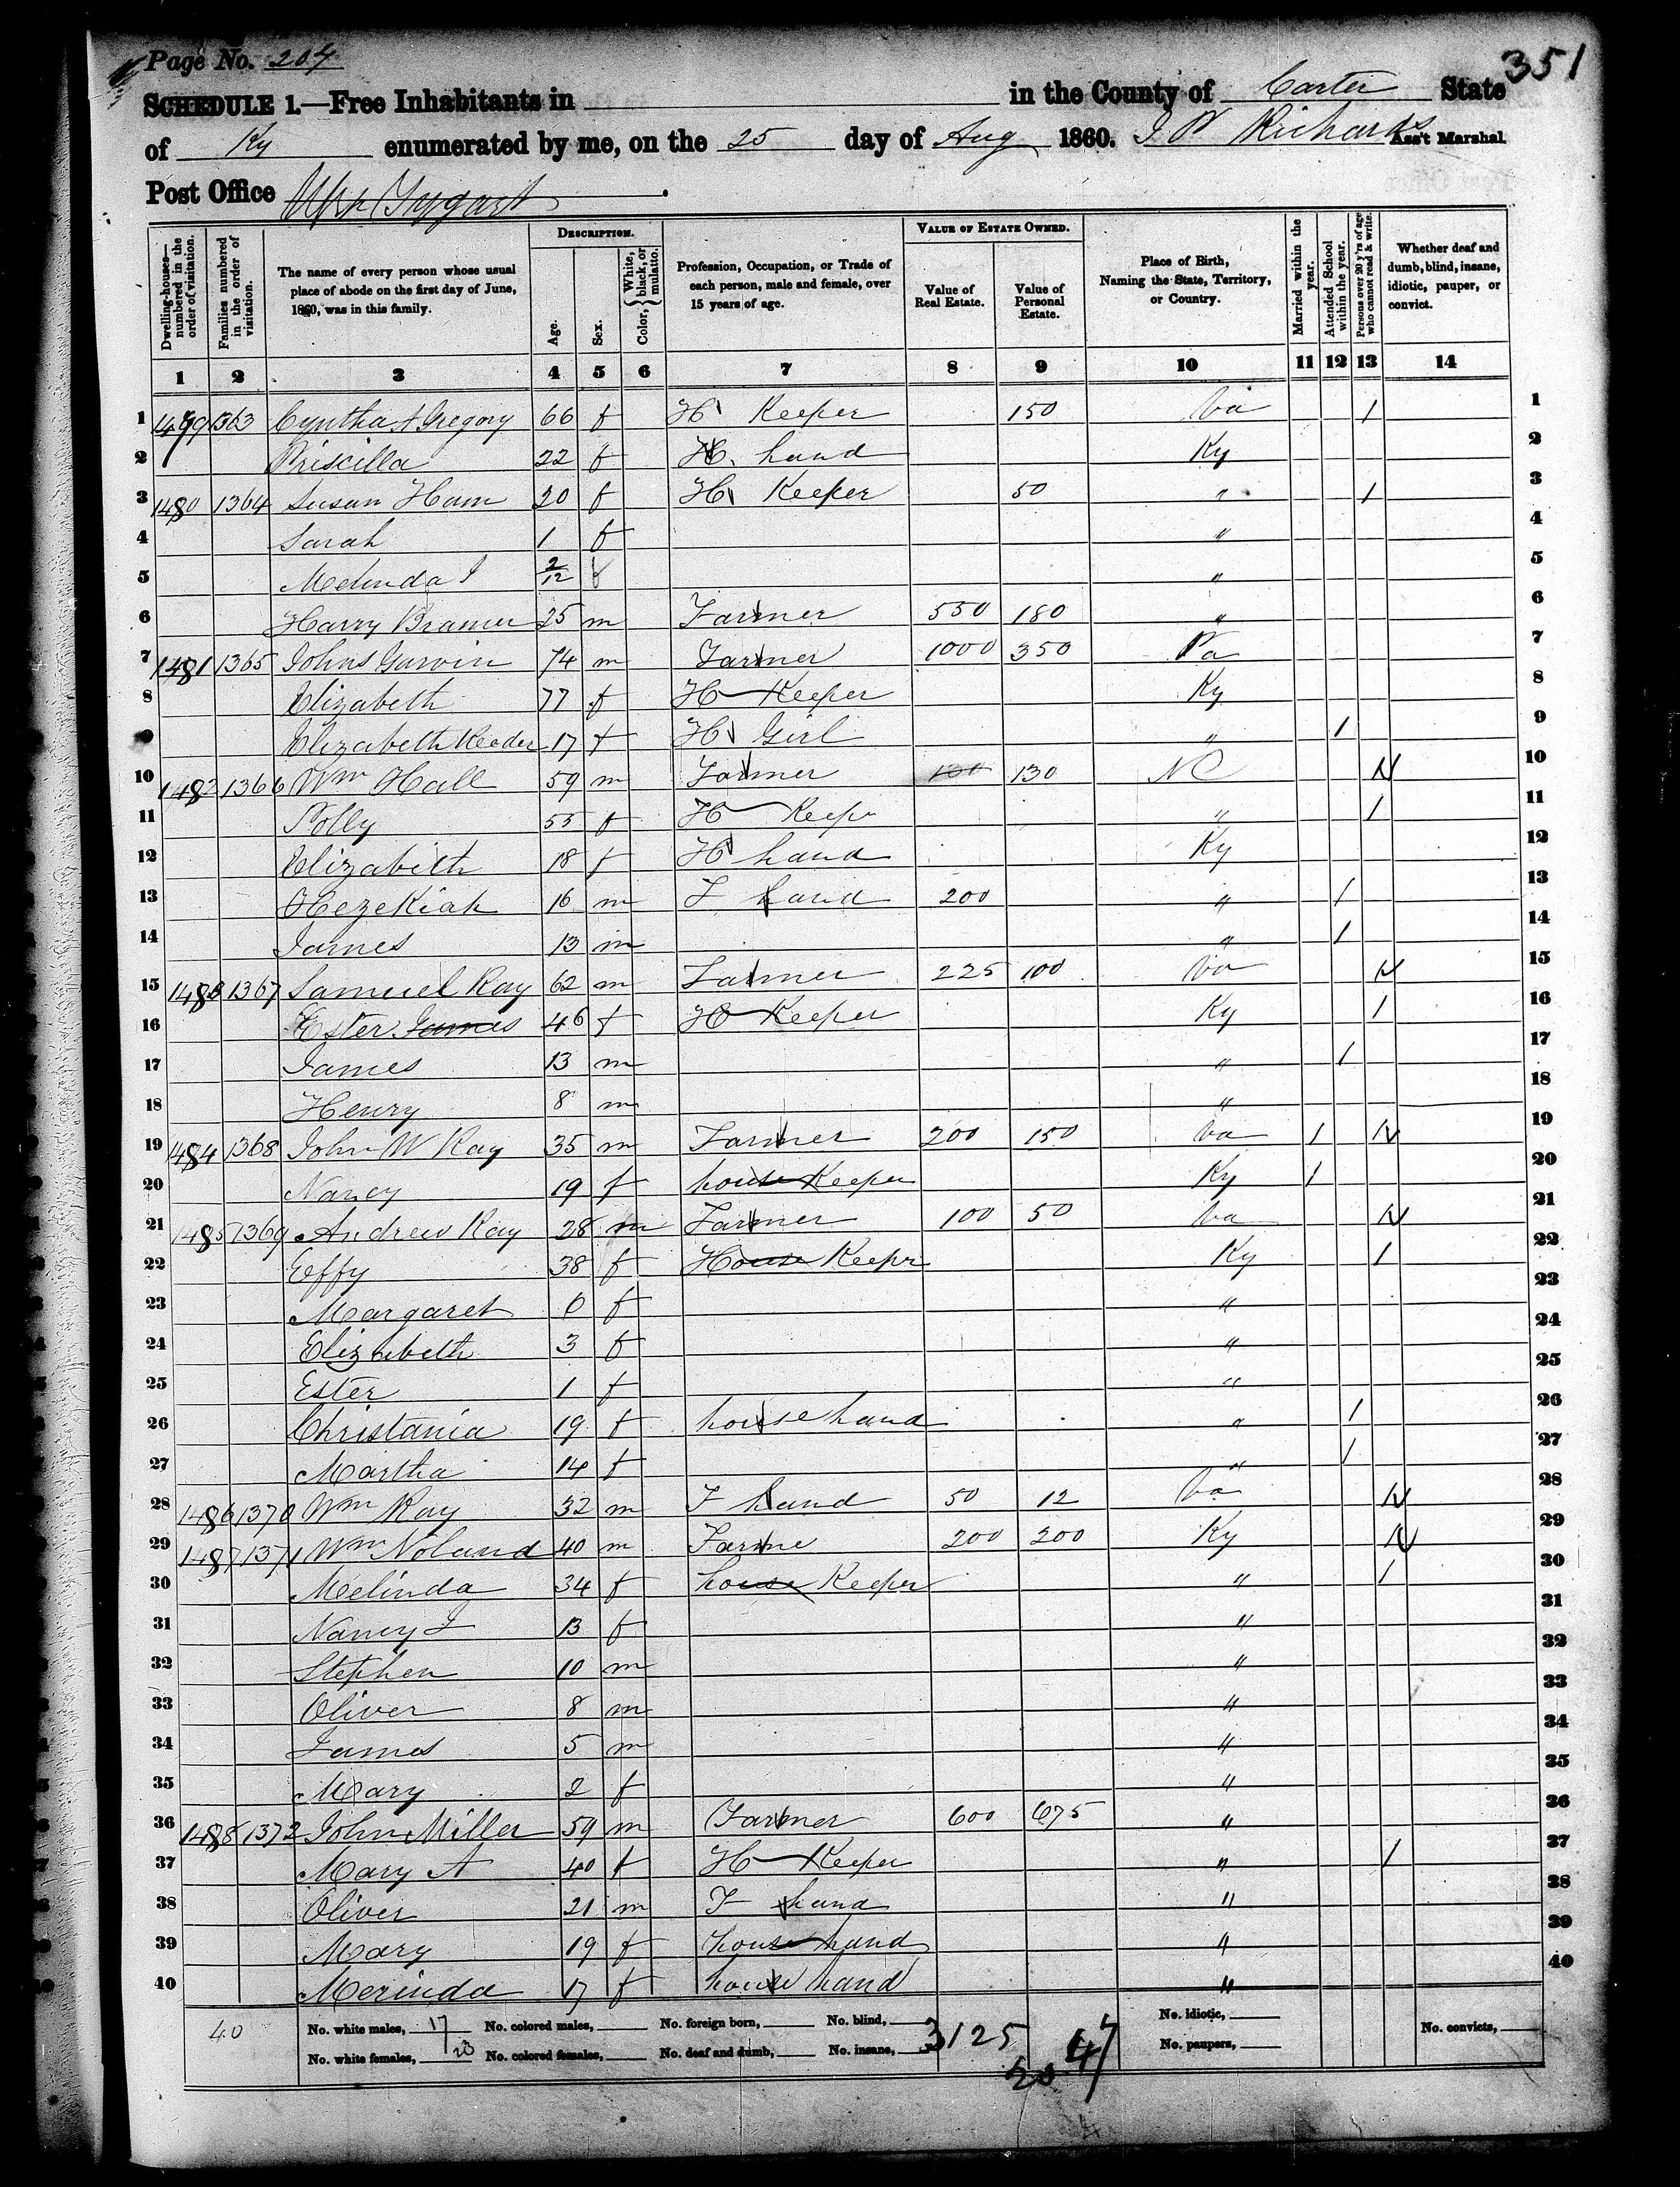 Page No. 204
351
SCHEDULE 1.—Free Inhabitants in in the County of Carter State
of Ky enumerated by me, on the 25 day of Aug 1860. J W Richards Ass't Marshal.
Post Office Upr Tygart
Dwelling-houses—numbered in the order of visitation. Families numbered in the order of visitation. The name of every person whose usual place of abode on the first day of June, 1860, was in this family. DESCRIPTION. Age. Sex. Color, White, black, or mulatto. Profession, Occupation, or Trade of each person, male and female, over 15 years of age. VALUE OF ESTATE OWNED. Value of Real Estate. Value of Personal Estate. Place of Birth, Naming the State, Territory, or Country. Married within the year. Attended School within the year. Persons over 20 y'rs of age who cannot read & write. Whether deaf and dumb, blind, insane, idiotic, pauper, or convict.
1 2 3 4 5 6 7 8 9 10 11 12 13 14
1 1479 1363 Cyntha A Gregory 66 f H Keeper 150 Va / 1
2 Priscilla 22 f H. hand Ky 2
3 1480 1364 Susan Ham 20 f H Keeper 50 " / 3
4 Sarah 1 f " 4
5 Melinda J 2/12 f " 5
6 Harry Bramer 25 m Farmer 550 180 " 6
7 1481 1365 Johns Garvin 74 m Farmer 1000 350 Pa 7
8 Elizabeth 77 f H Keeper Ky 8
9 Elizabeth Reeder 17 f H Girl " / 9
10 1482 1366 Wm Hall 59 m Farmer 100 130 NC 10
11 Polly 55 f H Keepr " / 11
12 Elizabeth 18 f H hand Ky 12
13 Hezekiah 16 m F hand 200 " / 13
14 James 13 m " / 14
15 1483 1367 Samuel Ray 62 m Farmer 225 100 Va 15
16 Ester James 46 f H Keeper Ky / 16
17 James 13 m " / 17
18 Henry 8 m " 18
19 1484 1368 John W Ray 35 m Farmer 200 150 Va / 19
20 Nancy 19 f house Keeper Ky / 20
21 1485 1369 Andrew Ray 28 m Farmer 100 50 Va 21
22 Effy 38 f House Keepr Ky / 22
23 Margaret 6 f " 23
24 Elizabeth 3 f " 24
25 Ester 1 f " 25
26 Christania 19 f house hand " / 26
27 Martha 14 f " / 27
28 1486 1370 Wm Ray 32 m F hand 50 12 Va 28
29 1487 1371 Wm Noland 40 m Farme 200 200 Ky 29
30 Melinda 34 f house Keeper " / 30
31 Nancy J 13 f " 31
32 Stephen 10 m " 32
33 Oliver 8 m " 33
34 James 5 m " 34
35 Mary 2 f " 35
36 1488 1372 John Miller 59 m Farmer 600 675 " 36
37 Mary A 40 f H Keeper " / 37
38 Oliver 21 m F hand " 38
39 Mary 19 f house hand " 39
40 Merinda 17 f house hand " 40
40 No. white males, 17 No. colored males, No. foreign born, No. blind, 3125 No. idiotic, No. convicts,
No. white females, 23 No. colored females, No. deaf and dumb, No. insane, 2047 No. paupers,